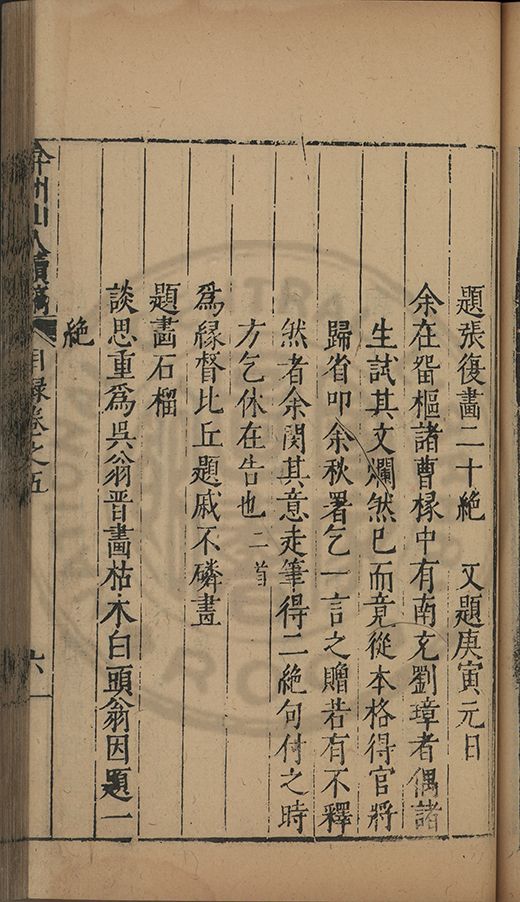 題張復畫二十絕　又題庚寅元日
余在留樞諸曹椽中有南充劉璋者偶諸
生試其文爛然已而竟從本格得官將
歸省叩余秋署乞一言之贈若有不釋
然者余閔其意走筆得二絕句付之時
方乞休在告也二首
爲緣督比丘題戚不磷畫
題畫石榴
談思重爲吳翁晋畵枯木白頭翁因題一
絶
弇州山人續稿　目録卷之五　六